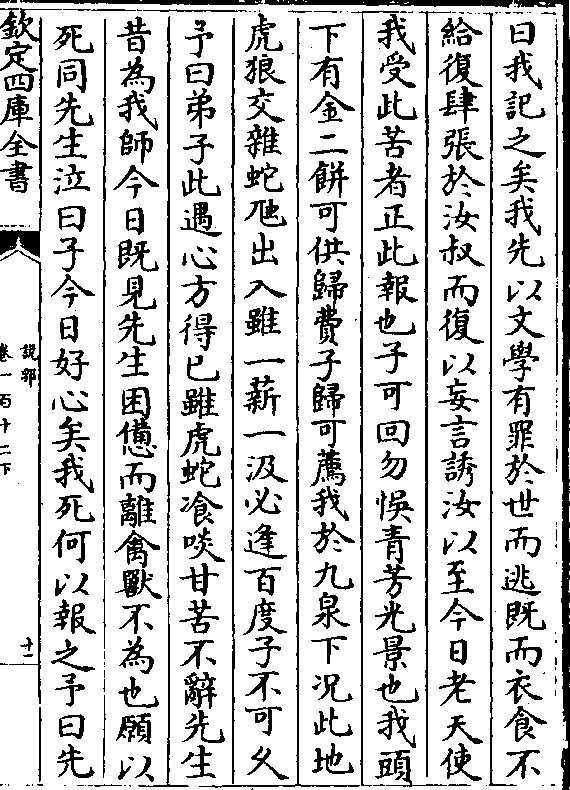 曰我記之矣我先以文學有罪於世而逃既而衣食不
給復肆張於汝叔而復以妄言誘汝以至今日老天使
我受此苦者正此報也子可回勿悞青芳光景也我頭
下有金二餅可供歸費子歸可薦我於九泉下况此地
虎狼交雜蛇虺出入雖一薪一汲必逢百度子不可久
予曰弟子此遇心方得已雖虎蛇飡啖甘苦不辭先生
昔為我師今日既見先生困憊而離禽獸不為也願以
死同先生泣曰子今日好心矣我死何以報之予曰先
欽定四庫全書
說郛
卷一百十二下
十一